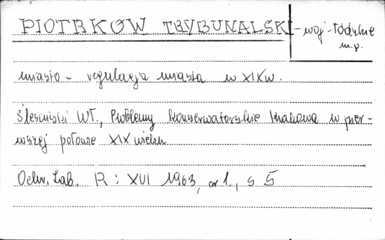 PIOTRKOW TRYBUNALSKI - woj - łódzkie
m.p.
miasto - regulacja miasta w XIX w.
Ślesiński Wł., Problemy Konserwatorskie Krakowa w pier-
wszej połowie XIX wieku
Ochr. Zab. R: XVI 1963, nr 1, s 5